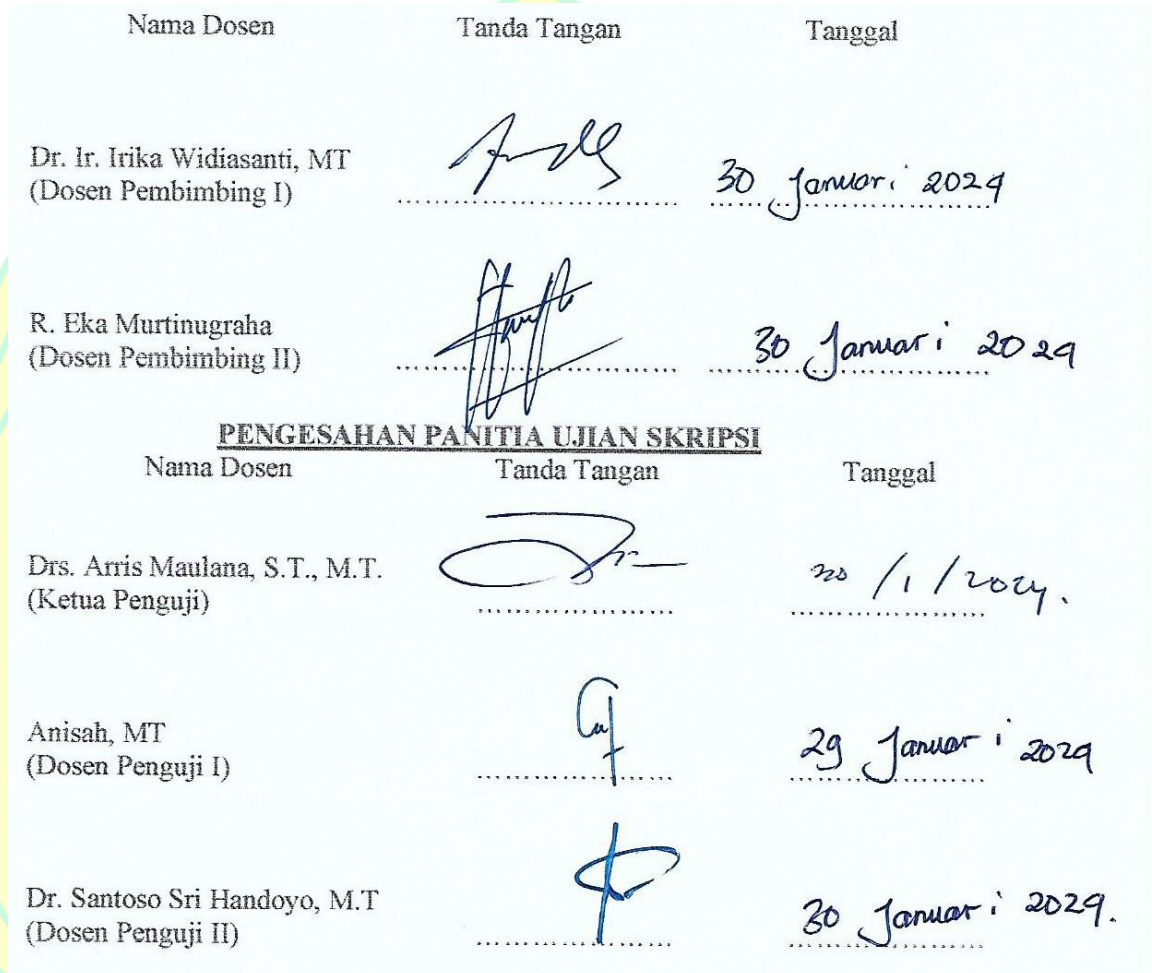 Nama Dosen Tanda Tangan Tanggal
Dr. Ir. Irika Widiasanti, MT
(Dosen Pembimbing I) ........................ 30 Januari 2024
R. Eka Murtinugraha
(Dosen Pembimbing II) ........................ 30 Januari 2024
PENGESAHAN PANITIA UJIAN SKRIPSI
Nama Dosen Tanda Tangan Tanggal
Drs. Arris Maulana, S.T., M.T.
(Ketua Penguji) .................... /1/2024.
Anisah, MT
(Dosen Penguji I) .................... 29 Januari 2024
Dr. Santoso Sri Handoyo, M.T
(Dosen Penguji II) .................... 30 Januari 2024.